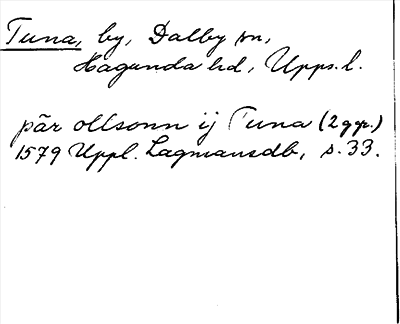 Tuna, by, Dalby sn,
Hagunda hd, Upps. l.
pär ollsonn ij Tuna (2 ggr.)
1579 Uppl. Lagmansdb, s. 33.